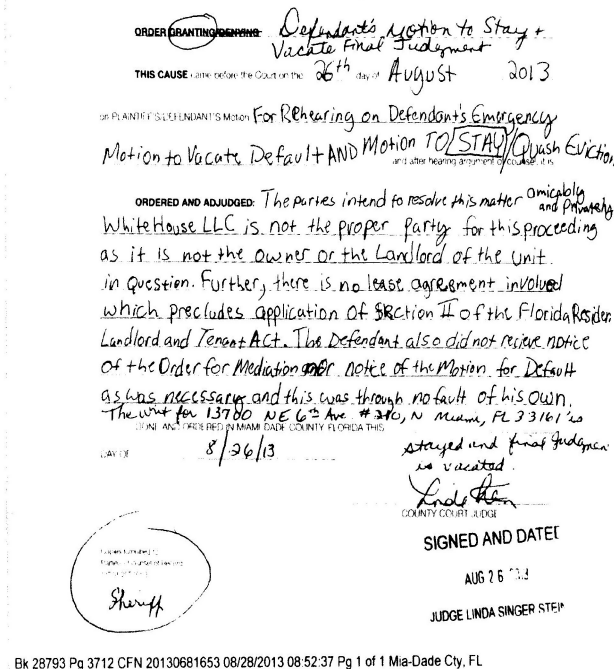 ORDER GRANTING/DENYING Defendant's Motion to Stay +
Vacate Final Judgment
THIS CAUSE came before the Court on the 26th day of August 2013
on PLAINTIFF'S/DEFENDANT'S Motion For Rehearing on Defendant's Emergency
Motion to Vacate Default AND Motion TO STAY/Quash Eviction,
and after hearing argument of counsel, it is
ORDERED AND ADJUDGED: The parties intend to resolve this matter amicably
and privately
WhiteHouse LLC is not the proper party for this proceeding
as it is not the owner or the Landlord of the unit
in Question. Further, there is no lease agreement involved
which precludes application of Section II of the Florida Residen
Landlord and Tenant Act. The Defendant also did not recieve notice
of the Order for Mediation nor notice of the Motion for Default
as was necessary and this was through no fault of his own.
The writ for 13700 NE 6th Ave # 210, N Miami, FL 33161 is
DONE AND ORDERED IN MIAMI DADE COUNTY FLORIDA THIS
stayed and final Judgmen
DAY OF 8/26/13
is vacated.
COUNTY COURT JUDGE
SIGNED AND DATED
AUG 26
JUDGE LINDA SINGER STEIN
Copies furnished to
Sheriff
Bk 28793 Pg 3712 CFN 20130681653 08/28/2013 08:52:37 Pg 1 of 1 Mia-Dade Cty, FL